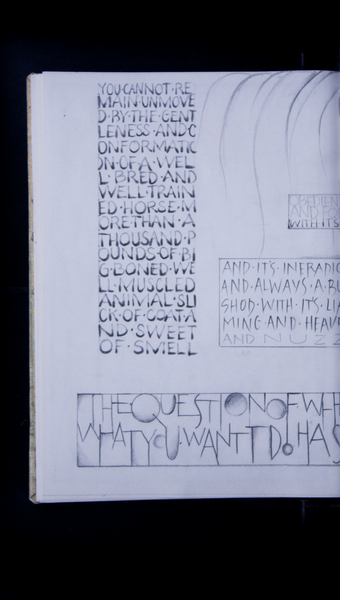 YOU·CANNOT·RE
MAIN·UNMOVE
D·BY·THE·GENT
LENESS·AND·C
ONFORMATIC
ON·OF·A·WEL
L·BRED·AND
WELL·TRAIN
ED·HORSE·M
ORETHAN·A
THOUSAND·P
OUNDS·OF·BI
G·BONED·WE
LL·MUSCLED
ANIMAL·SLI
CK·OF·COAT·A
ND·SWEET
OF·SMELL
OBEDIEN
AND
WITH·IT'S
AND·IT'S·INERADIC
AND·ALWAYS·A·RU
SHOD·WITH·IT'S·LIA
MING·AND·HEAV
AND NUZZ
THE QUESTION OF WH
WHAT YOU·WANT TO DO HAS